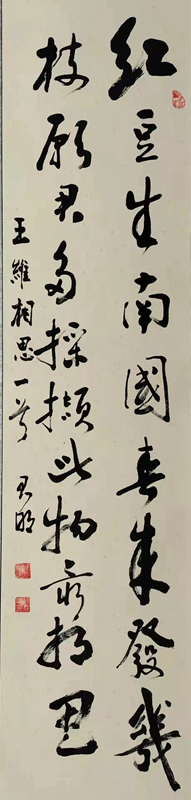 紅豆生南國春來發幾
枝願君多採擷此物最相思
王維相思一首 君明